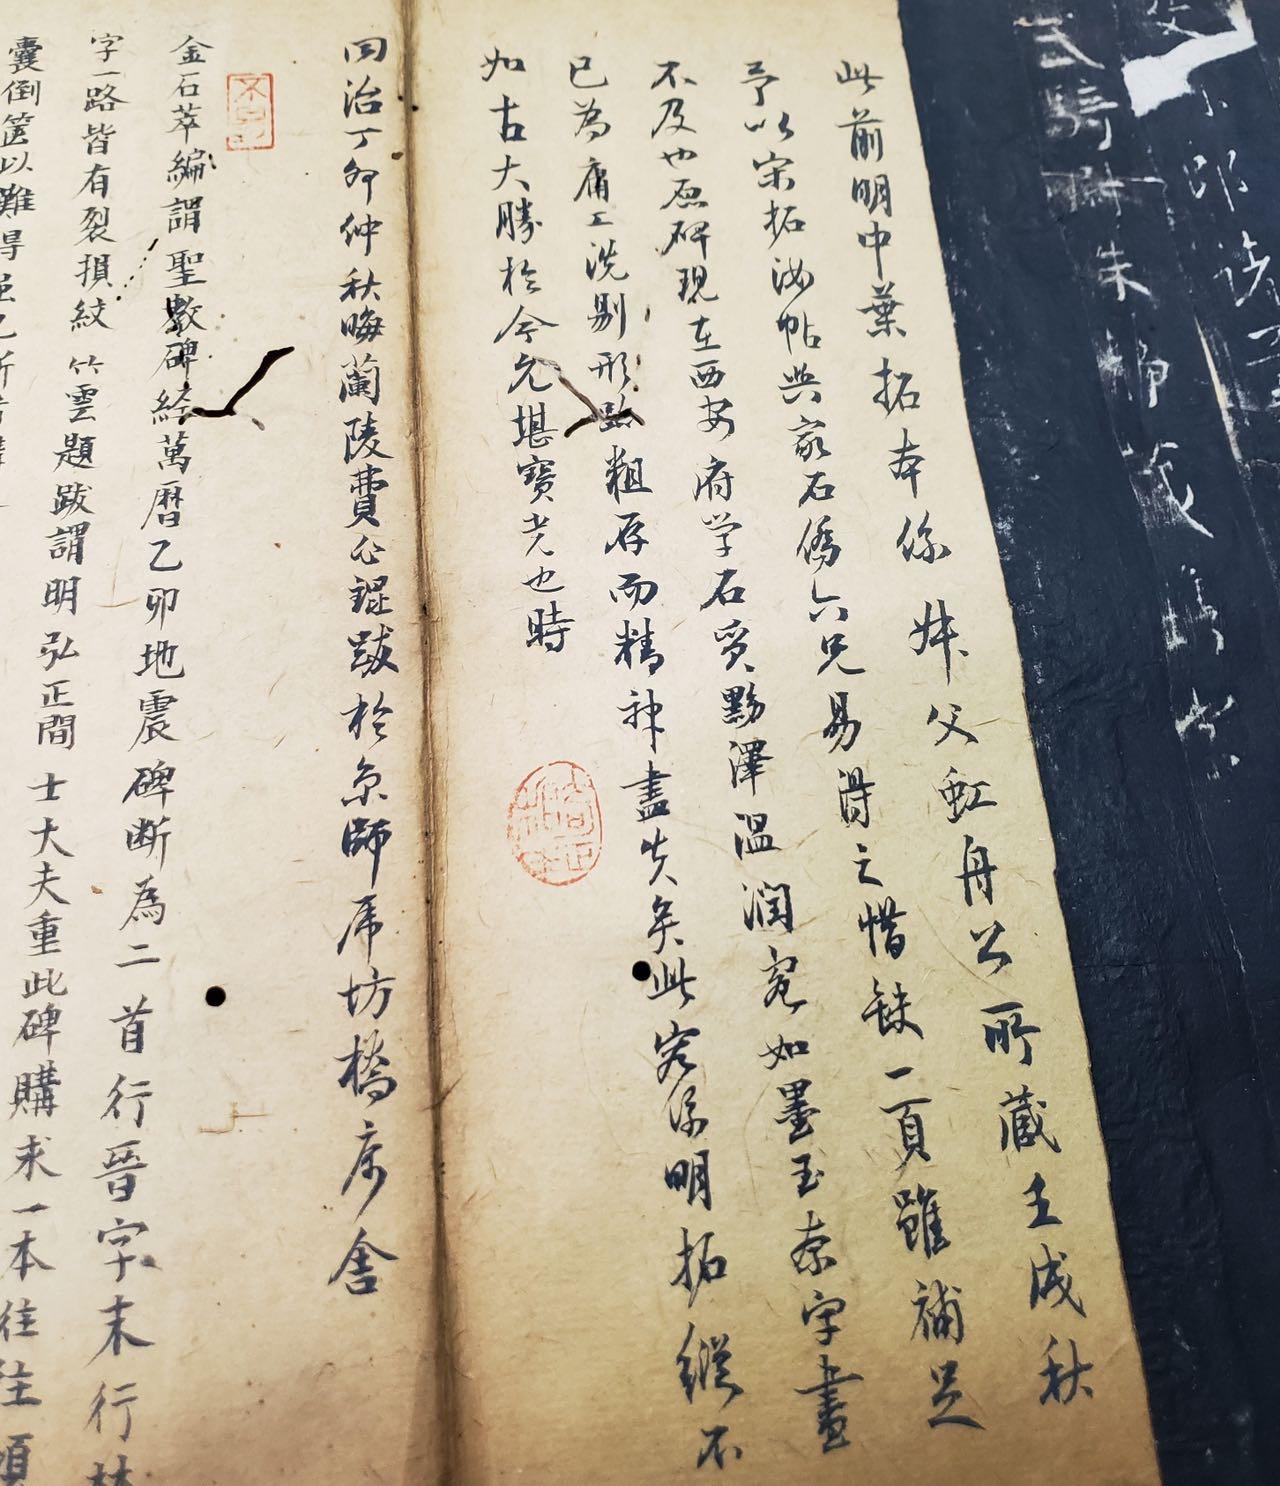 此前明中葉拓本係妹父虹舟公所藏壬戌秋
予以宋拓汝帖與家石僑六兄易得之惜缺一頁雖補足
不及也原碑現在西安府学石質黝澤温潤宛如墨玉奈字畫
已為庸工洗剔形路粗存而精神盡失矣此寔係明拓縱不
如古大勝於今允堪寶光也時
同治丁卯仲秋晦蘭陵費心錕跋於京師虎坊橋寓舍
金石萃編謂聖教碑経萬曆乙卯地震碑断為二首行晉字末行林
字一路皆有裂損紋竹雲題跋謂明弘正間士大夫重此碑購求一本往往頃
囊倒篋以難得
朱